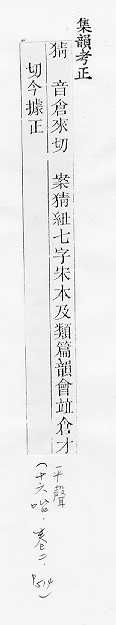 集韻考正
猜　音倉來切　案猜紐七字宋本及類篇韻會竝倉才
切今據正
平聲
(十六咍．卷二．P514)